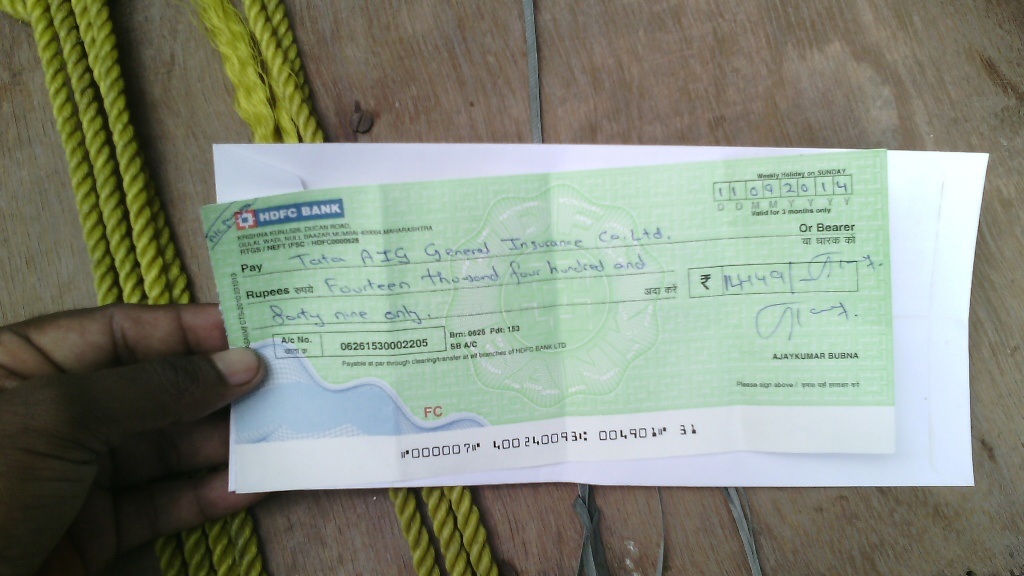 HDFC BANK
KRISHNA KUNJ,026, DUCAN ROAD,
GULAL WADI, NULL BAZAAR MUMBAI 400004,MAHARASHTRA
RTGS / NEFT IFSC : HDFC0000626
Weekly Holiday on SUNDAY
11092014
D D M M Y Y Y Y
Valid for 3 months only
Pay Tata AIG General Insurance Co. Ltd.
Or Bearer
या धारक को
Rupees रुपये Fourteen thousand four hundred and
अदा करे
₹ 14449/
forty nine only.
A/c No. 06261530002205
Brn: 0626 Pdt: 153
SB A/C
Payable at par through clearing/transfer at all branches of HDFC BANK LTD
AJAYKUMAR BUBNA
Please sign above /
FC
⑈000007⑈ 400240093⑆ 004901⑈ 31